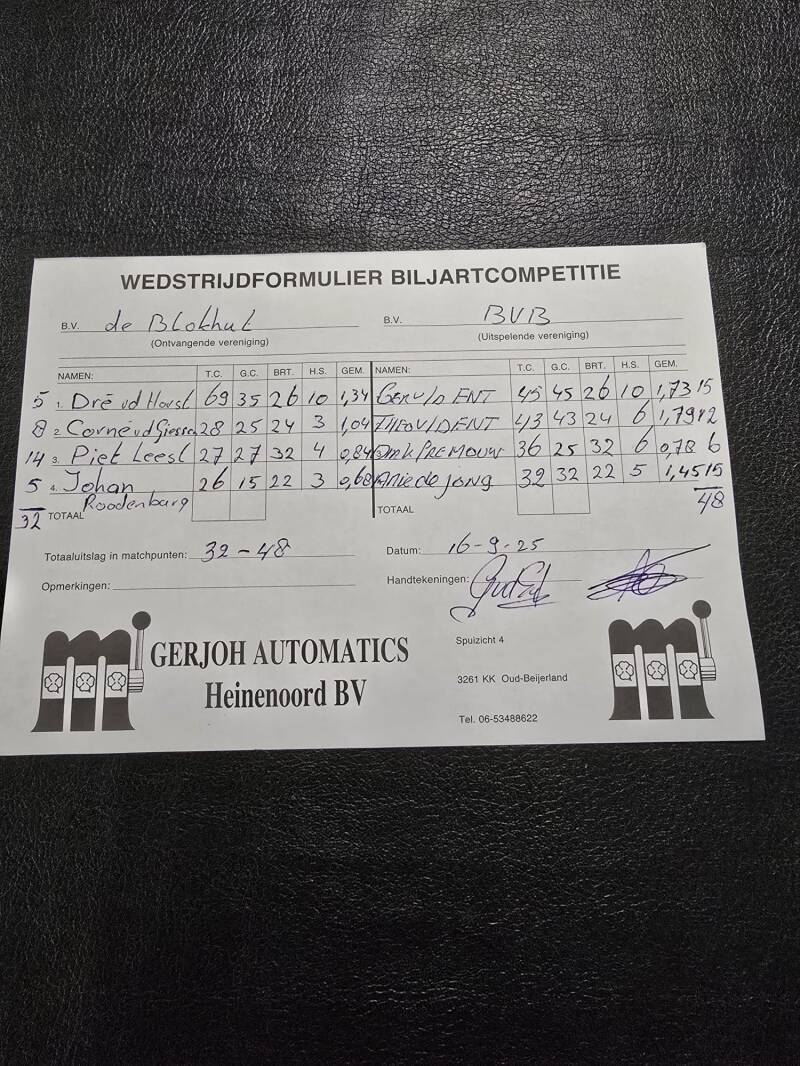 WEDSTRIJDFORMULIER BILJARTCOMPETITIE
B.V. de Blokhut B.V. BVB
(Ontvangende vereniging) (Uitspelende vereniging)
NAMEN: T.C. G.C. BRT. H.S. GEM. NAMEN: T.C. G.C. BRT. H.S. GEM.
5 1. Dré vd Horst 69 35 26 10 1,34 GER V/D ENT 45 45 26 10 1,73 15
8 2. Corné vd Giessen 28 25 24 3 1,04 THEO V/D ENT 43 43 24 6 1,79 12
14 3. Piet Leest 27 27 32 4 0,84 36 25 32 6 0,78 6
5 4. Johan 26 15 22 3 0,68 Arie de Jong 32 32 22 5 1,45 15
Roodenburg
32 TOTAAL TOTAAL 48
Totaaluitslag in matchpunten: 32-48 Datum: 16-9-25
Opmerkingen: Handtekeningen:
GERJOH AUTOMATICS
Heinenoord BV
Spuizicht 4
3261 KK Oud-Beijerland
Tel. 06-53488622